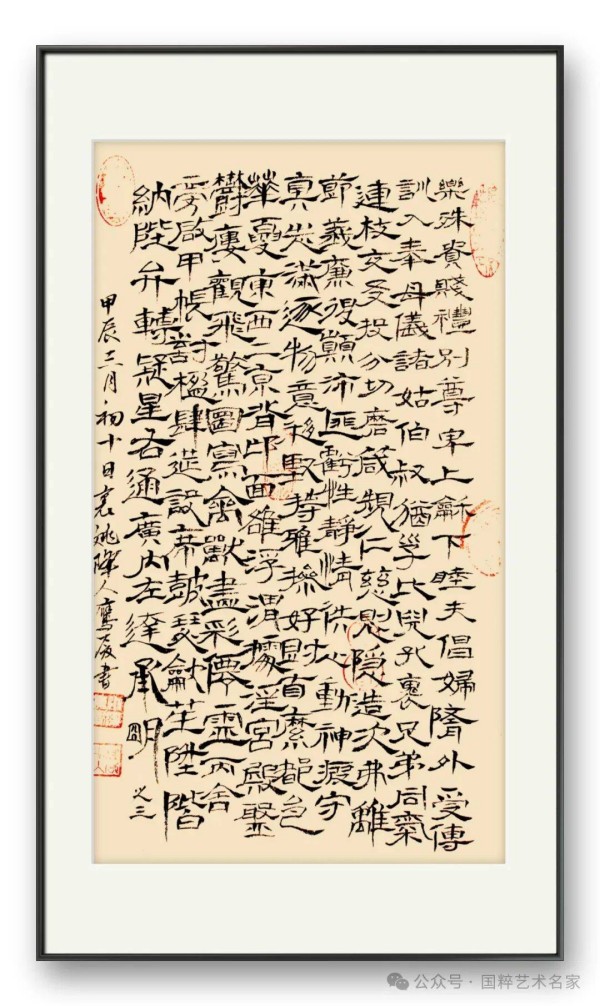 樂殊貴賤禮別尊卑上龢下睦夫倡婦隨外受傅
訓入奉母儀諸姑伯叔猶子比兒孔褱兄弟同氣
連枝交友投分切磨箴規仁慈惻隱造次弗離
節義廉退顛沛匪虧性靜情逸心動神疲守
真志滿逐物意移堅持雅操好爵自縻都邑
華夏東西二京背邙面雒浮渭據涇宮殿盤
鬱樓觀飛驚圖寫禽獸畫彩僊靈丙舍
旁啟甲帳對楹肆筵設席鼓瑟龡笙陞階
納陛弁轉疑星右通廣內左達承明 之三
甲辰三月初十日 人鷹 書
公众号·国粹艺术名家